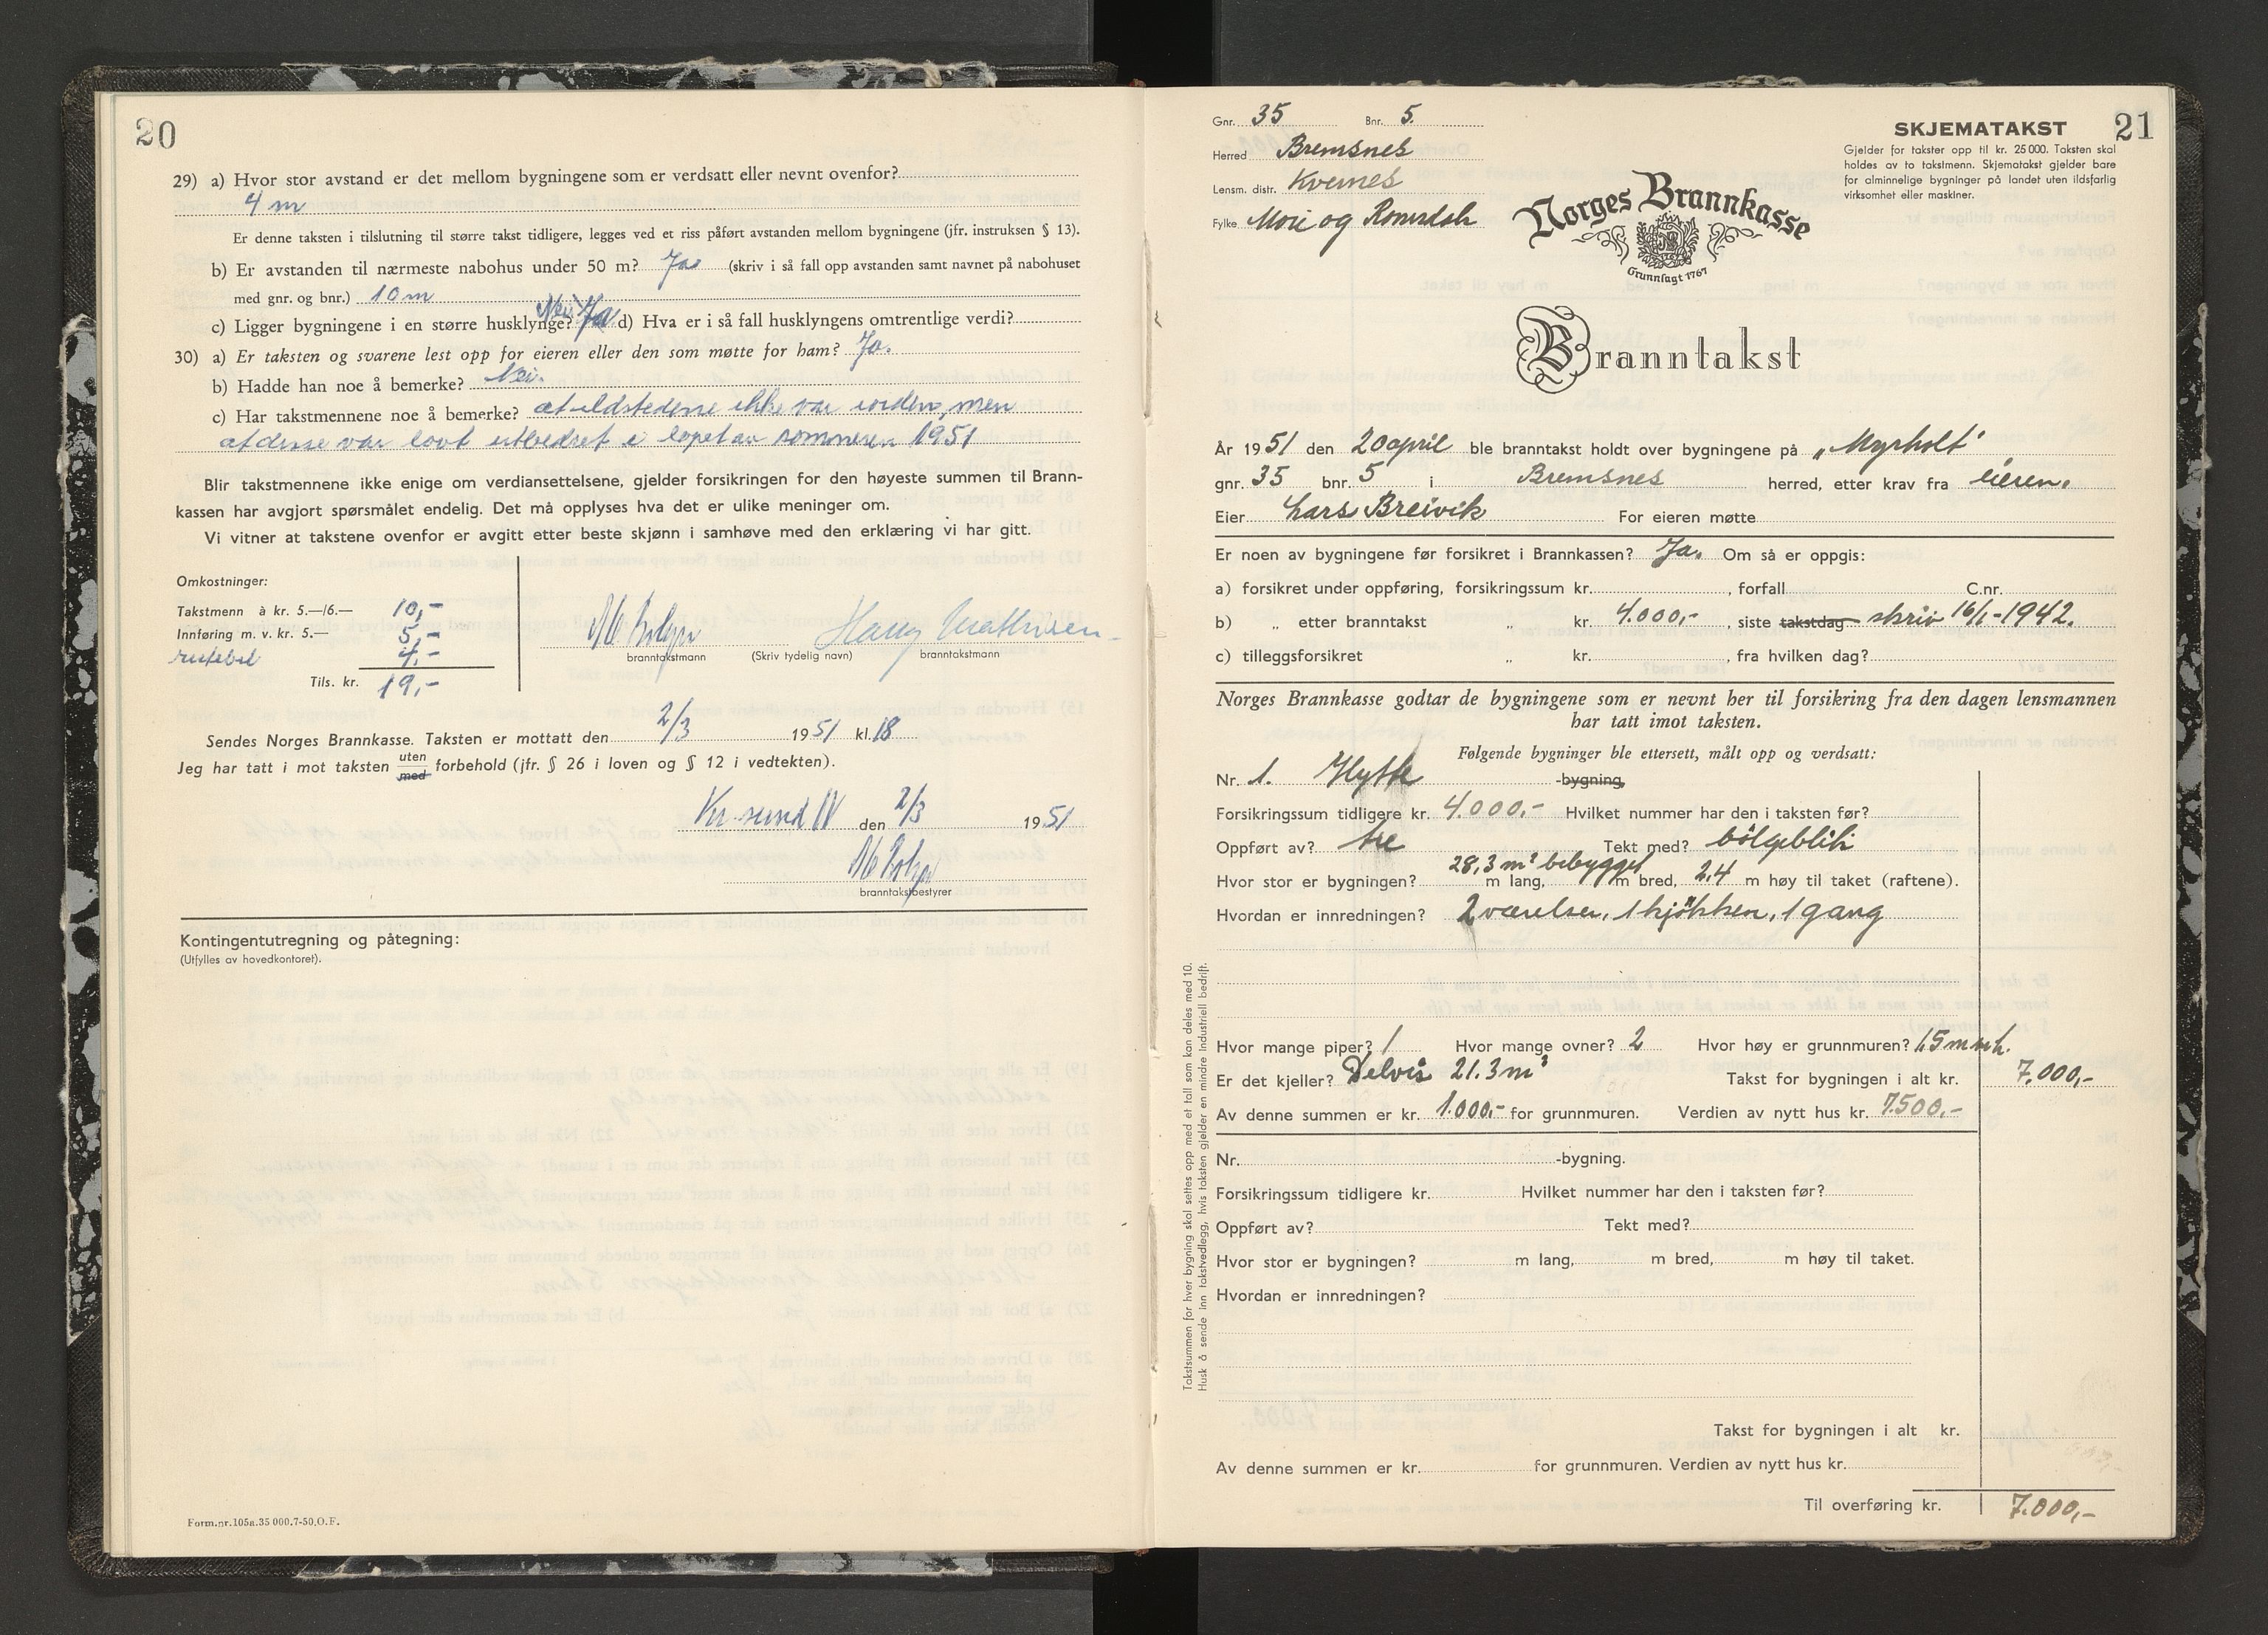 20
29) a) Hvor stor avstand er det mellom bygningene som er verdsatt eller nevnt ovenfor?
4 m
Er denne taksten i tilslutning til større takst tidligere, legges ved et riss påført avstanden mellom bygningene (jfr. instruksen § 13).
b) Er avstanden til nærmeste nabohus under 50 m? Ja (skriv i så fall opp avstanden samt navnet på nabohuset
med gnr. og bnr.) 10 m
c) Ligger bygningene i en større husklynge? Nei Ja d) Hva er i så fall husklyngens omtrentlige verdi?
30) a) Er taksten og svarene lest opp for eieren eller den som møtte for ham? Ja.
b) Hadde han noe å bemerke? Nei.
c) Har takstmennene noe å bemerke? at ildstedene ikke var iorden, men
at desse var lovt utbedret i løpet av sommeren 1951
Blir takstmennene ikke enige om verdiansettelsene, gjelder forsikringen for den høyeste summen til Brann-
kassen har avgjort spørsmålet endelig. Det må opplyses hva det er ulike meninger om.
Vi vitner at takstene ovenfor er avgitt etter beste skjønn i samhøve med den erklæring vi har gitt.
Omkostninger:
Takstmenn à kr. 5.—/6.— 10,-
Innføring m. v. kr. 5.— 5,-
4,-
Tils. kr. 19,-
Harry Mathisen
branntakstmann (Skriv tydelig navn) branntakstmann
Sendes Norges Brannkasse. Taksten er mottatt den 2/3 1951 kl. 18
Jeg har tatt i mot taksten uten med forbehold (jfr. § 26 i loven og § 12 i vedtekten).
Kr.sund N den 2/3 1951
branntakstbestyrer
Kontingentutregning og påtegning:
(Utfylles av hovedkontoret).
Form.nr.105a.35 000.7-50.O.F.
21
Gnr. 35 Bnr. 5.
Herred Bremsnes
Lensm. distr. Kvernes
Fylke Møre og Romsdal
SKJEMATAKST
Gjelder for takster opp til kr. 25 000. Taksten skal
holdes av to takstmenn. Skjematakst gjelder bare
for alminnelige bygninger på landet uten ildsfarlig
virksomhet eller maskiner.
Norges Brannkasse
Grunnlagt 1767
Branntakst
År 1951 den 20 april ble branntakst holdt over bygningene på „Myrholt"
gnr. 35 bnr. 5 i Bremsnes herred, etter krav fra eieren.
Eier Lars Breivik For eieren møtte
Er noen av bygningene før forsikret i Brannkassen? Ja. Om så er oppgis:
a) forsikret under oppføring, forsikringssum kr. , forfall C.nr.
b) „ etter branntakst „ kr. 4.000,- , siste takstdag skriv 16/1-1942.
c) tilleggsforsikret „ kr. , fra hvilken dag?
Norges Brannkasse godtar de bygningene som er nevnt her til forsikring fra den dagen lensmannen
har tatt imot taksten.
Følgende bygninger ble ettersett, målt opp og verdsatt:
Nr. 1. Hytte -bygning.
Forsikringssum tidligere kr. 4.000,- Hvilket nummer har den i taksten før?
Oppført av? tre Tekt med? bölgeblik
Hvor stor er bygningen? 28,3 m² bebygget m lang, m bred, 2,4 m høy til taket (raftene).
Hvordan er innredningen? 2 værelser, 1 kjökken, 1 gang
Hvor mange piper? 1 Hvor mange ovner? 2 Hvor høy er grunnmuren? 1,5 m
Er det kjeller? Delvis 21.3 m² Takst for bygningen i alt kr. 7.000,-
Av denne summen er kr. 1.000,- for grunnmuren. Verdien av nytt hus kr. 7.500,-
Nr. -bygning.
Forsikringssum tidligere kr. Hvilket nummer har den i taksten før?
Oppført av? Tekt med?
Hvor stor er bygningen? m lang, m bred, m høy til taket.
Hvordan er innredningen?
Takst for bygningen i alt kr.
Av denne summen er kr. for grunnmuren. Verdien av nytt hus kr.
Til overføring kr. 7.000,-
Takstsummen for hver bygning skal settes opp med et tall som kan deles med 10.
Husk å sende inn takstvedlegg, hvis taksten gjelder en mindre industriell bedrift.